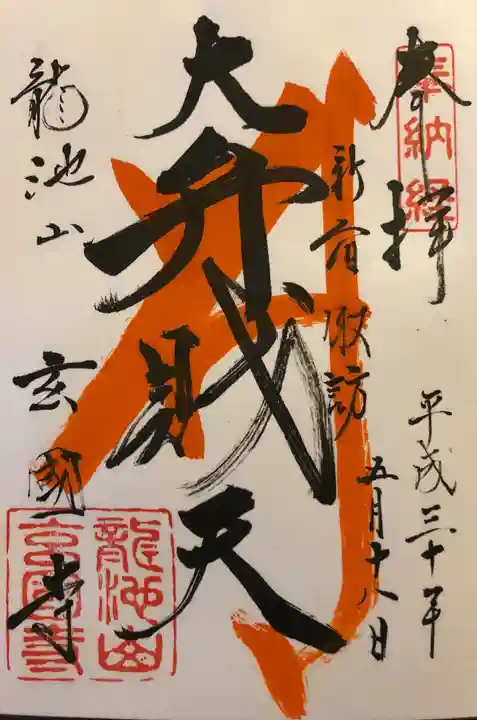 奉拝
奉納経
平成三十年
五月十八日
新宿諏訪
大弁財天
龍池山
玄国寺
龍池山
玄国寺